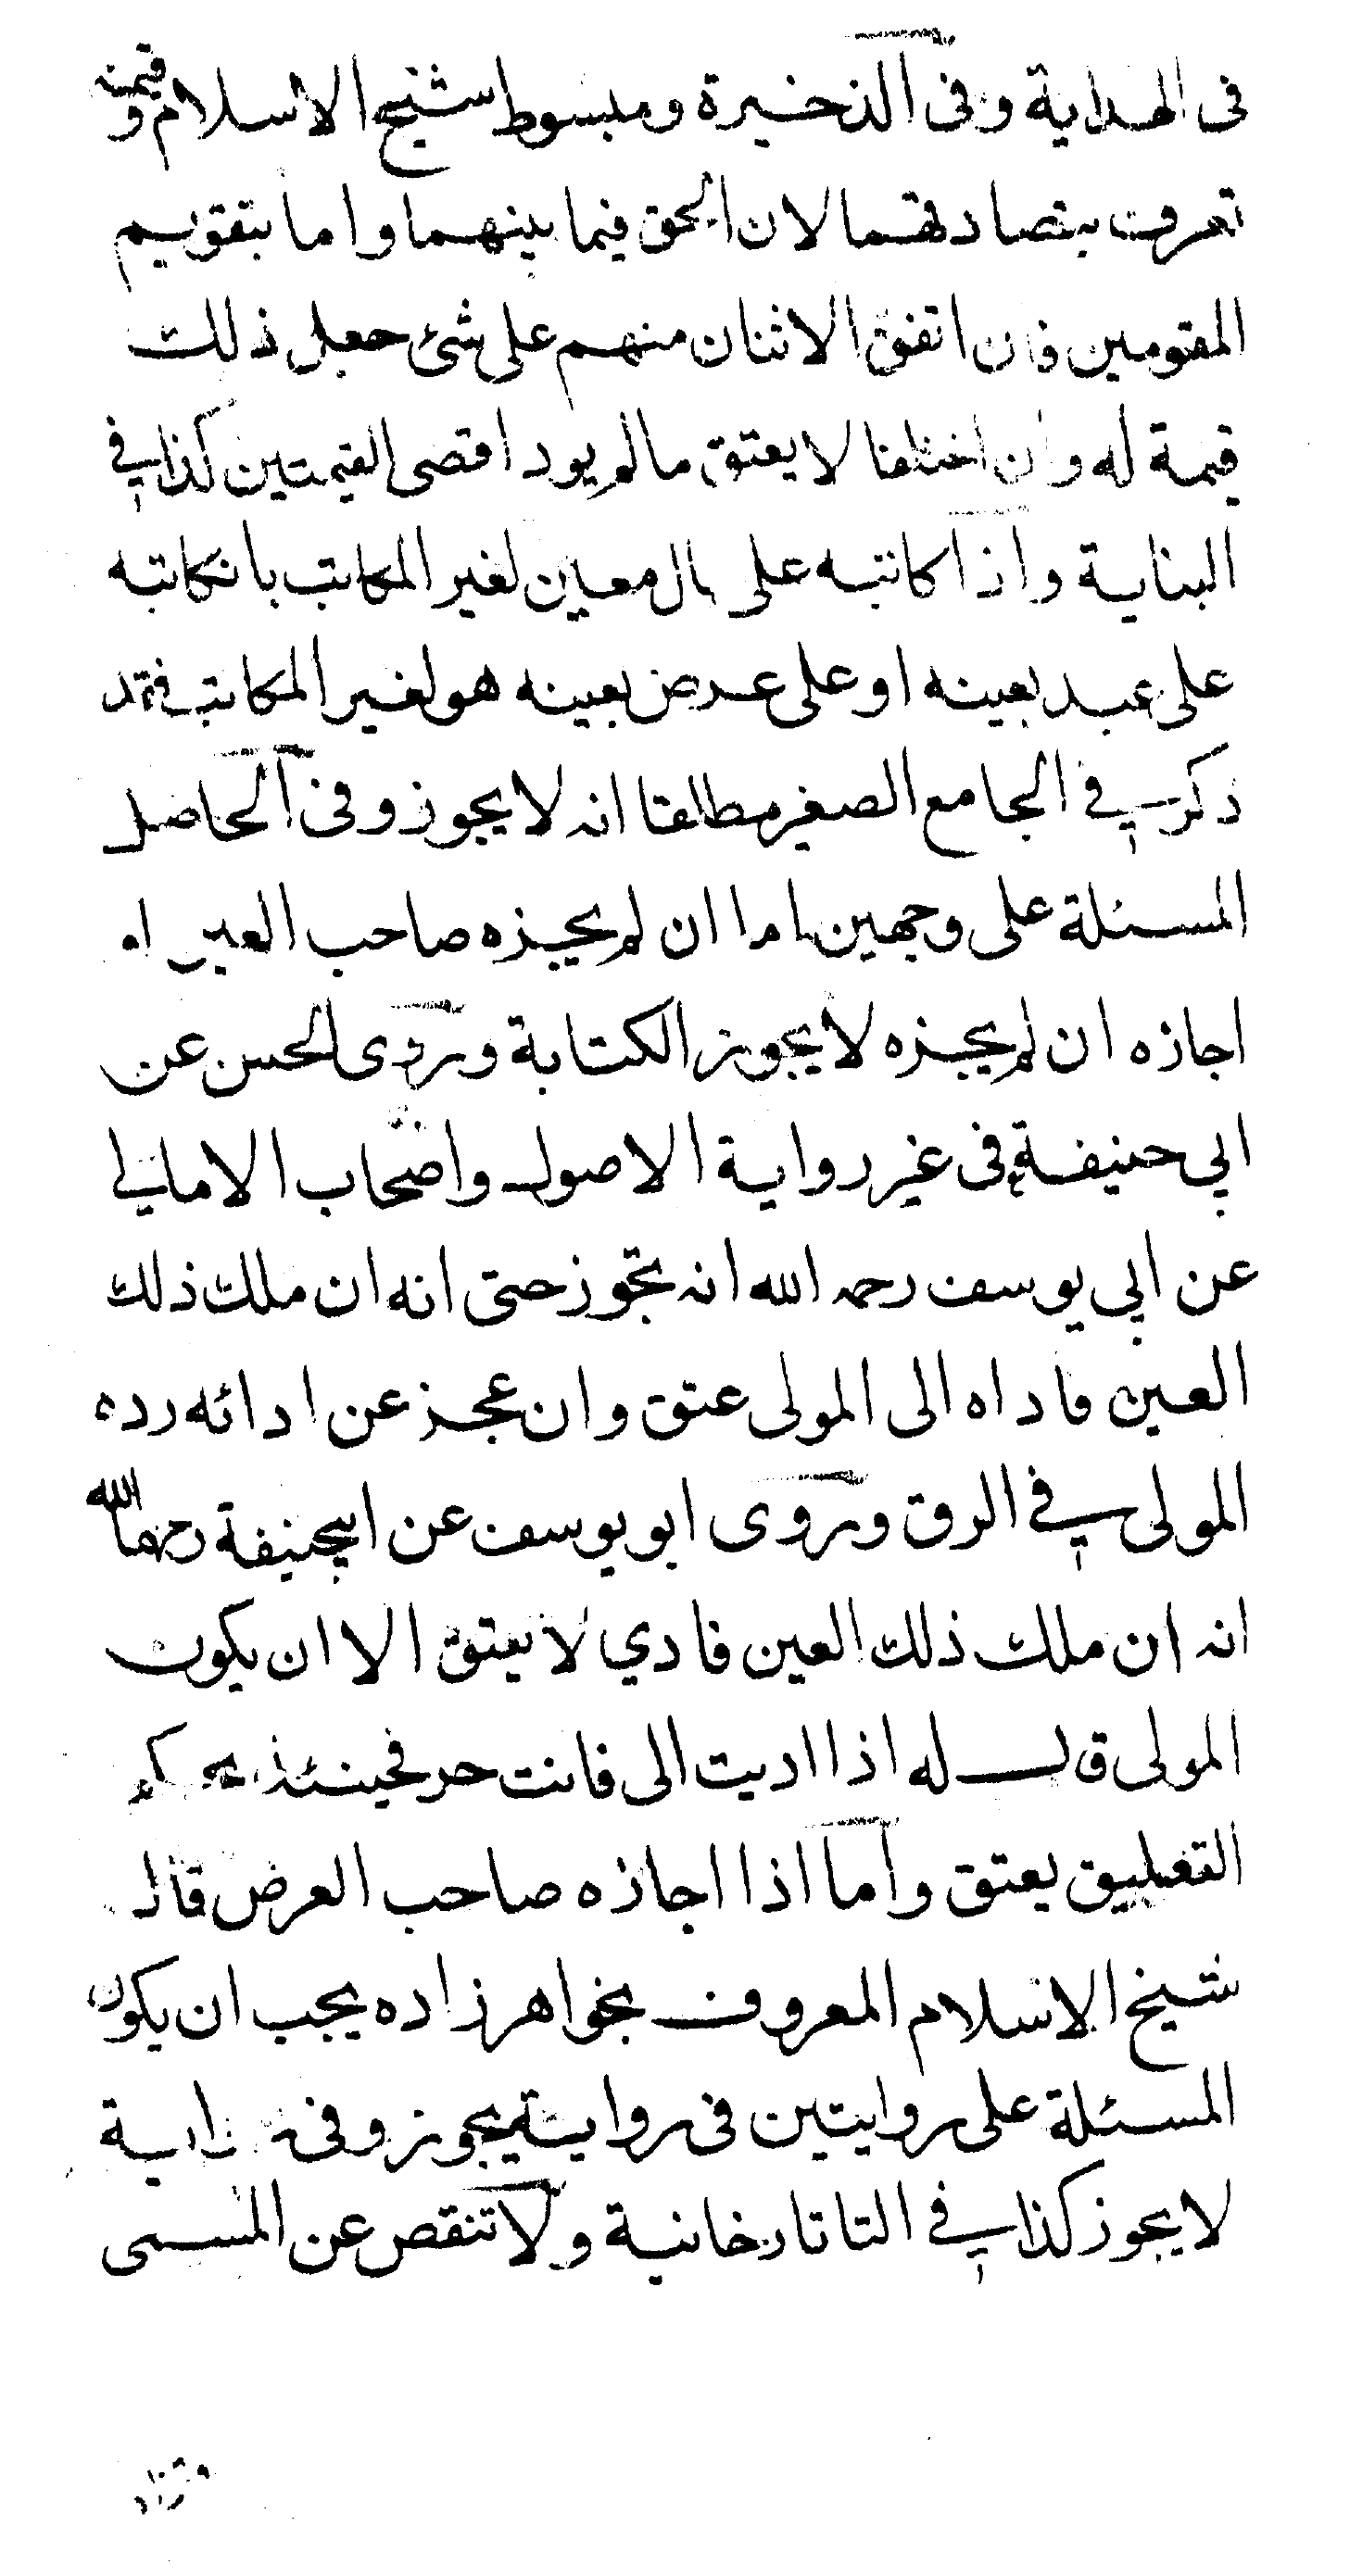 فى الهداية وفى الذخيرة ومبسوط شيخ الاسلام وقيمته
تعرف بتصادقهما لان الحق فيما بينهما واما بتقويم
المقومين فان اتفق الاثنان منهم على شئ جعل ذلك
قيمة له وان اختلفا لا يعتق مالم يود اقصى القيمتين كذا في
البناية واذا كاتبه على مال معين لغير المكاتب بان كاتبه
على عبد بعينه او على عرض بعينه هو لغير المكاتب فقد
ذكر في الجامع الصغير مطلقا انه لا يجوز وفى الحاصل
المسئلة على وجهين اما ان لم يجزه صاحب العين او
اجازه ان لم يجزه لا يجوز الكتابة وروى الحسن عن
ابي حنيفة فى غير رواية الاصول واصحاب الامالي
عن ابي يوسف رحمه الله انه تجوز حتى انه ان ملك ذلك
العين فاداه الى المولى عتق وان عجز عن ادائه رده
المولى في الرق وروى ابو يوسف عن ابيحنيفة رحمهما الله
انه ان ملك ذلك العين فادي لا يعتق الا ان يكون
المولى قال له اذا اديت الى فانت حر فحينئذ بحكم
التعليق يعتق واما اذا اجازه صاحب العرض قال
شيخ الاسلام المعروف بخواهر زاده يجب ان يكون
المسئلة على روايتين فى رواية يجوز وفى رواية
لا يجوز كذا في التاتارخانية ولا تنقص عن المسمى
وتزاد